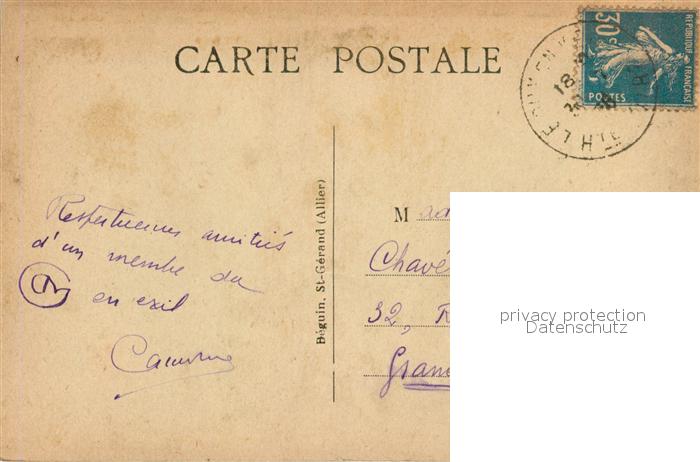 CARTE POSTALE
30c
REPUBLIQUE FRANÇAISE
POSTES
18
Respectueuses amitiés
d'un membre du
en exil
Béguin, St-Gérand (Allier)
M
Chavé
32, R
Gran
privacy protection
Datenschutz